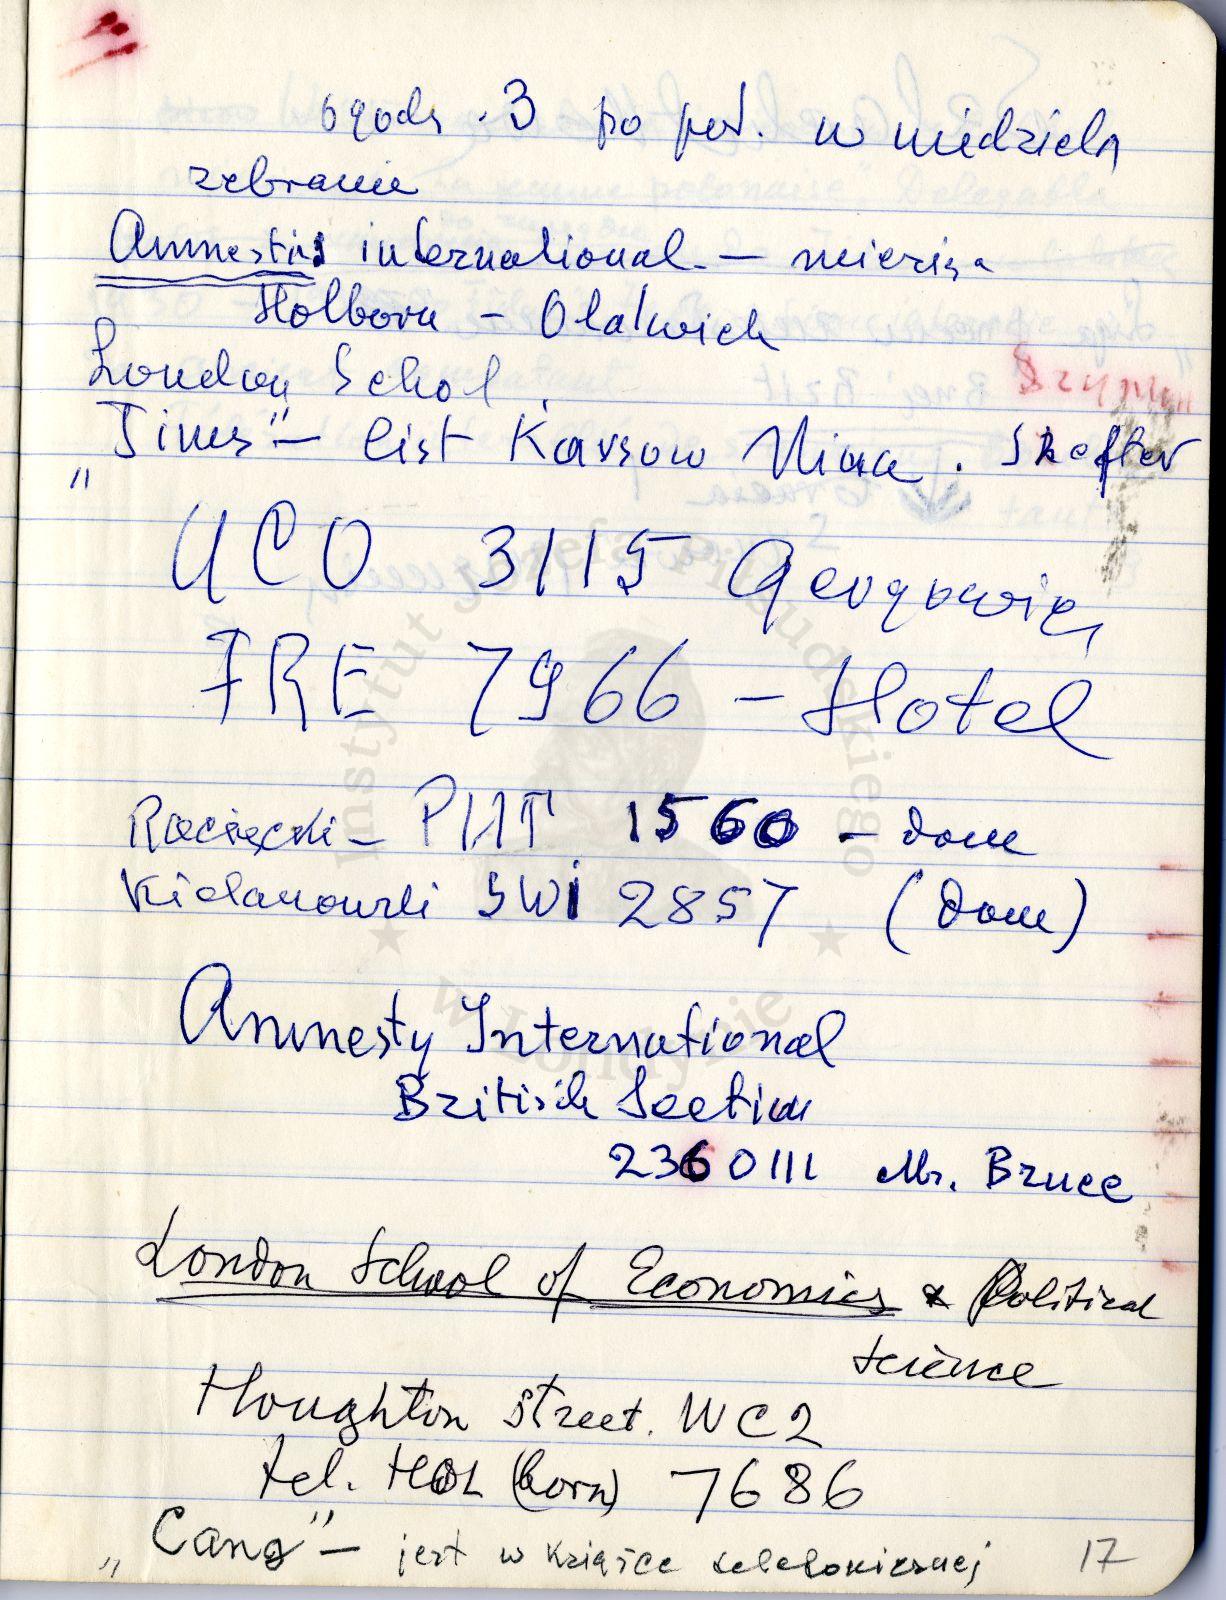 o godz. 3 po poł. w niedzielę
zebranie
Amnestis international. —
Holborn –
London Schol
„Times” – list Karsow Nina. Shefter
UCO 3115
FRE 7966 – Hotel
Racięski – PUT 1560 – dom
Kielanowski SWI 2857 (dom)
Amnesty International
British Section
2360111 Mr. Bruce
London School of Economics & Political
science
Houghton street. WC2
tel. HOL (born) 7686
„Cang” – jest w książce telefonicznej 17
Instytut Józefa Piłsudskiego
w Londynie